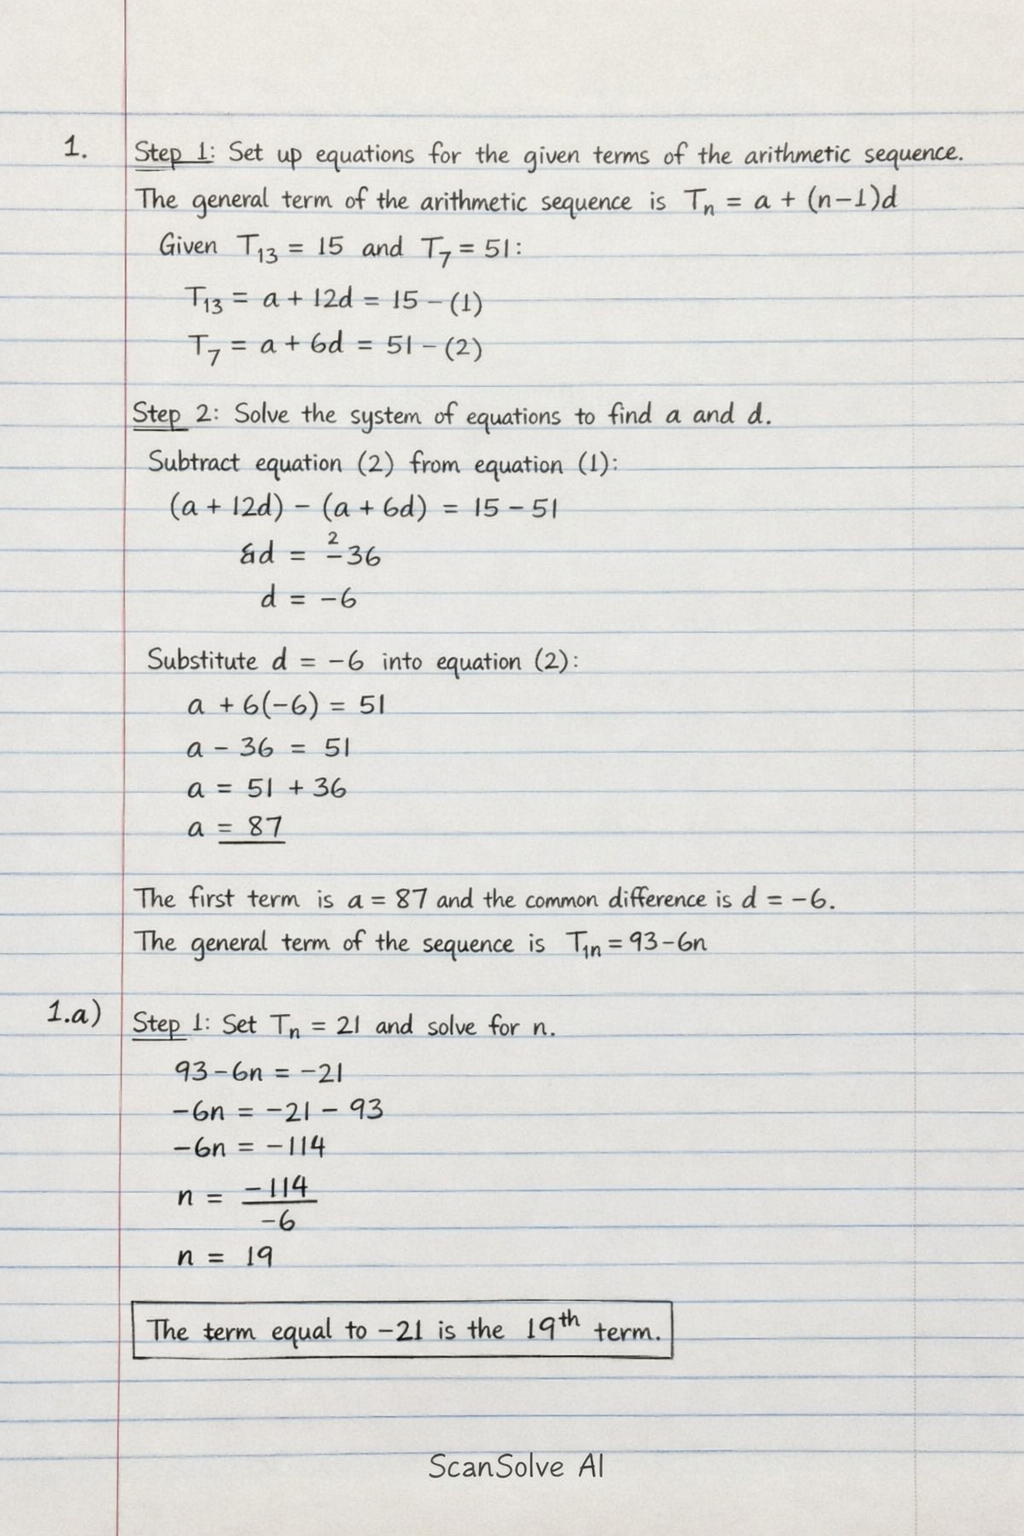 1. Step 1: Set up equations for the given terms of the arithmetic sequence.
The general term of the arithmetic sequence is Tₙ = a + (n-1)d
Given T₁₃ = 15 and T₇ = 51:
T₁₃ = a + 12d = 15 - (1)
T₇ = a + 6d = 51 - (2)
Step 2: Solve the system of equations to find a and d.
Subtract equation (2) from equation (1):
(a + 12d) - (a + 6d) = 15 - 51
d = -36
2
d = -6
Substitute d = -6 into equation (2):
a + 6(-6) = 51
a - 36 = 51
a = 51 + 36
a = 87
The first term is a = 87 and the common difference is d = -6.
The general term of the sequence is T₁ₙ = 93 - 6n
1.a) Step 1: Set Tₙ = 21 and solve for n.
93 - 6n = -21
-6n = -21 - 93
-6n = -114
n = -114
-6
n = 19
The term equal to -21 is the 19th term.
ScanSolve AI